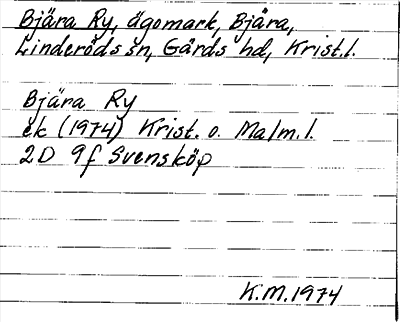 Bjära Ry, ägomark, Bjåra,
Linderöds sn, Gärds hd, Krist.l.
Bjära Ry
ek (1974) Krist. o. Malm.l.
2D 9f Svensköp
K.M. 1974